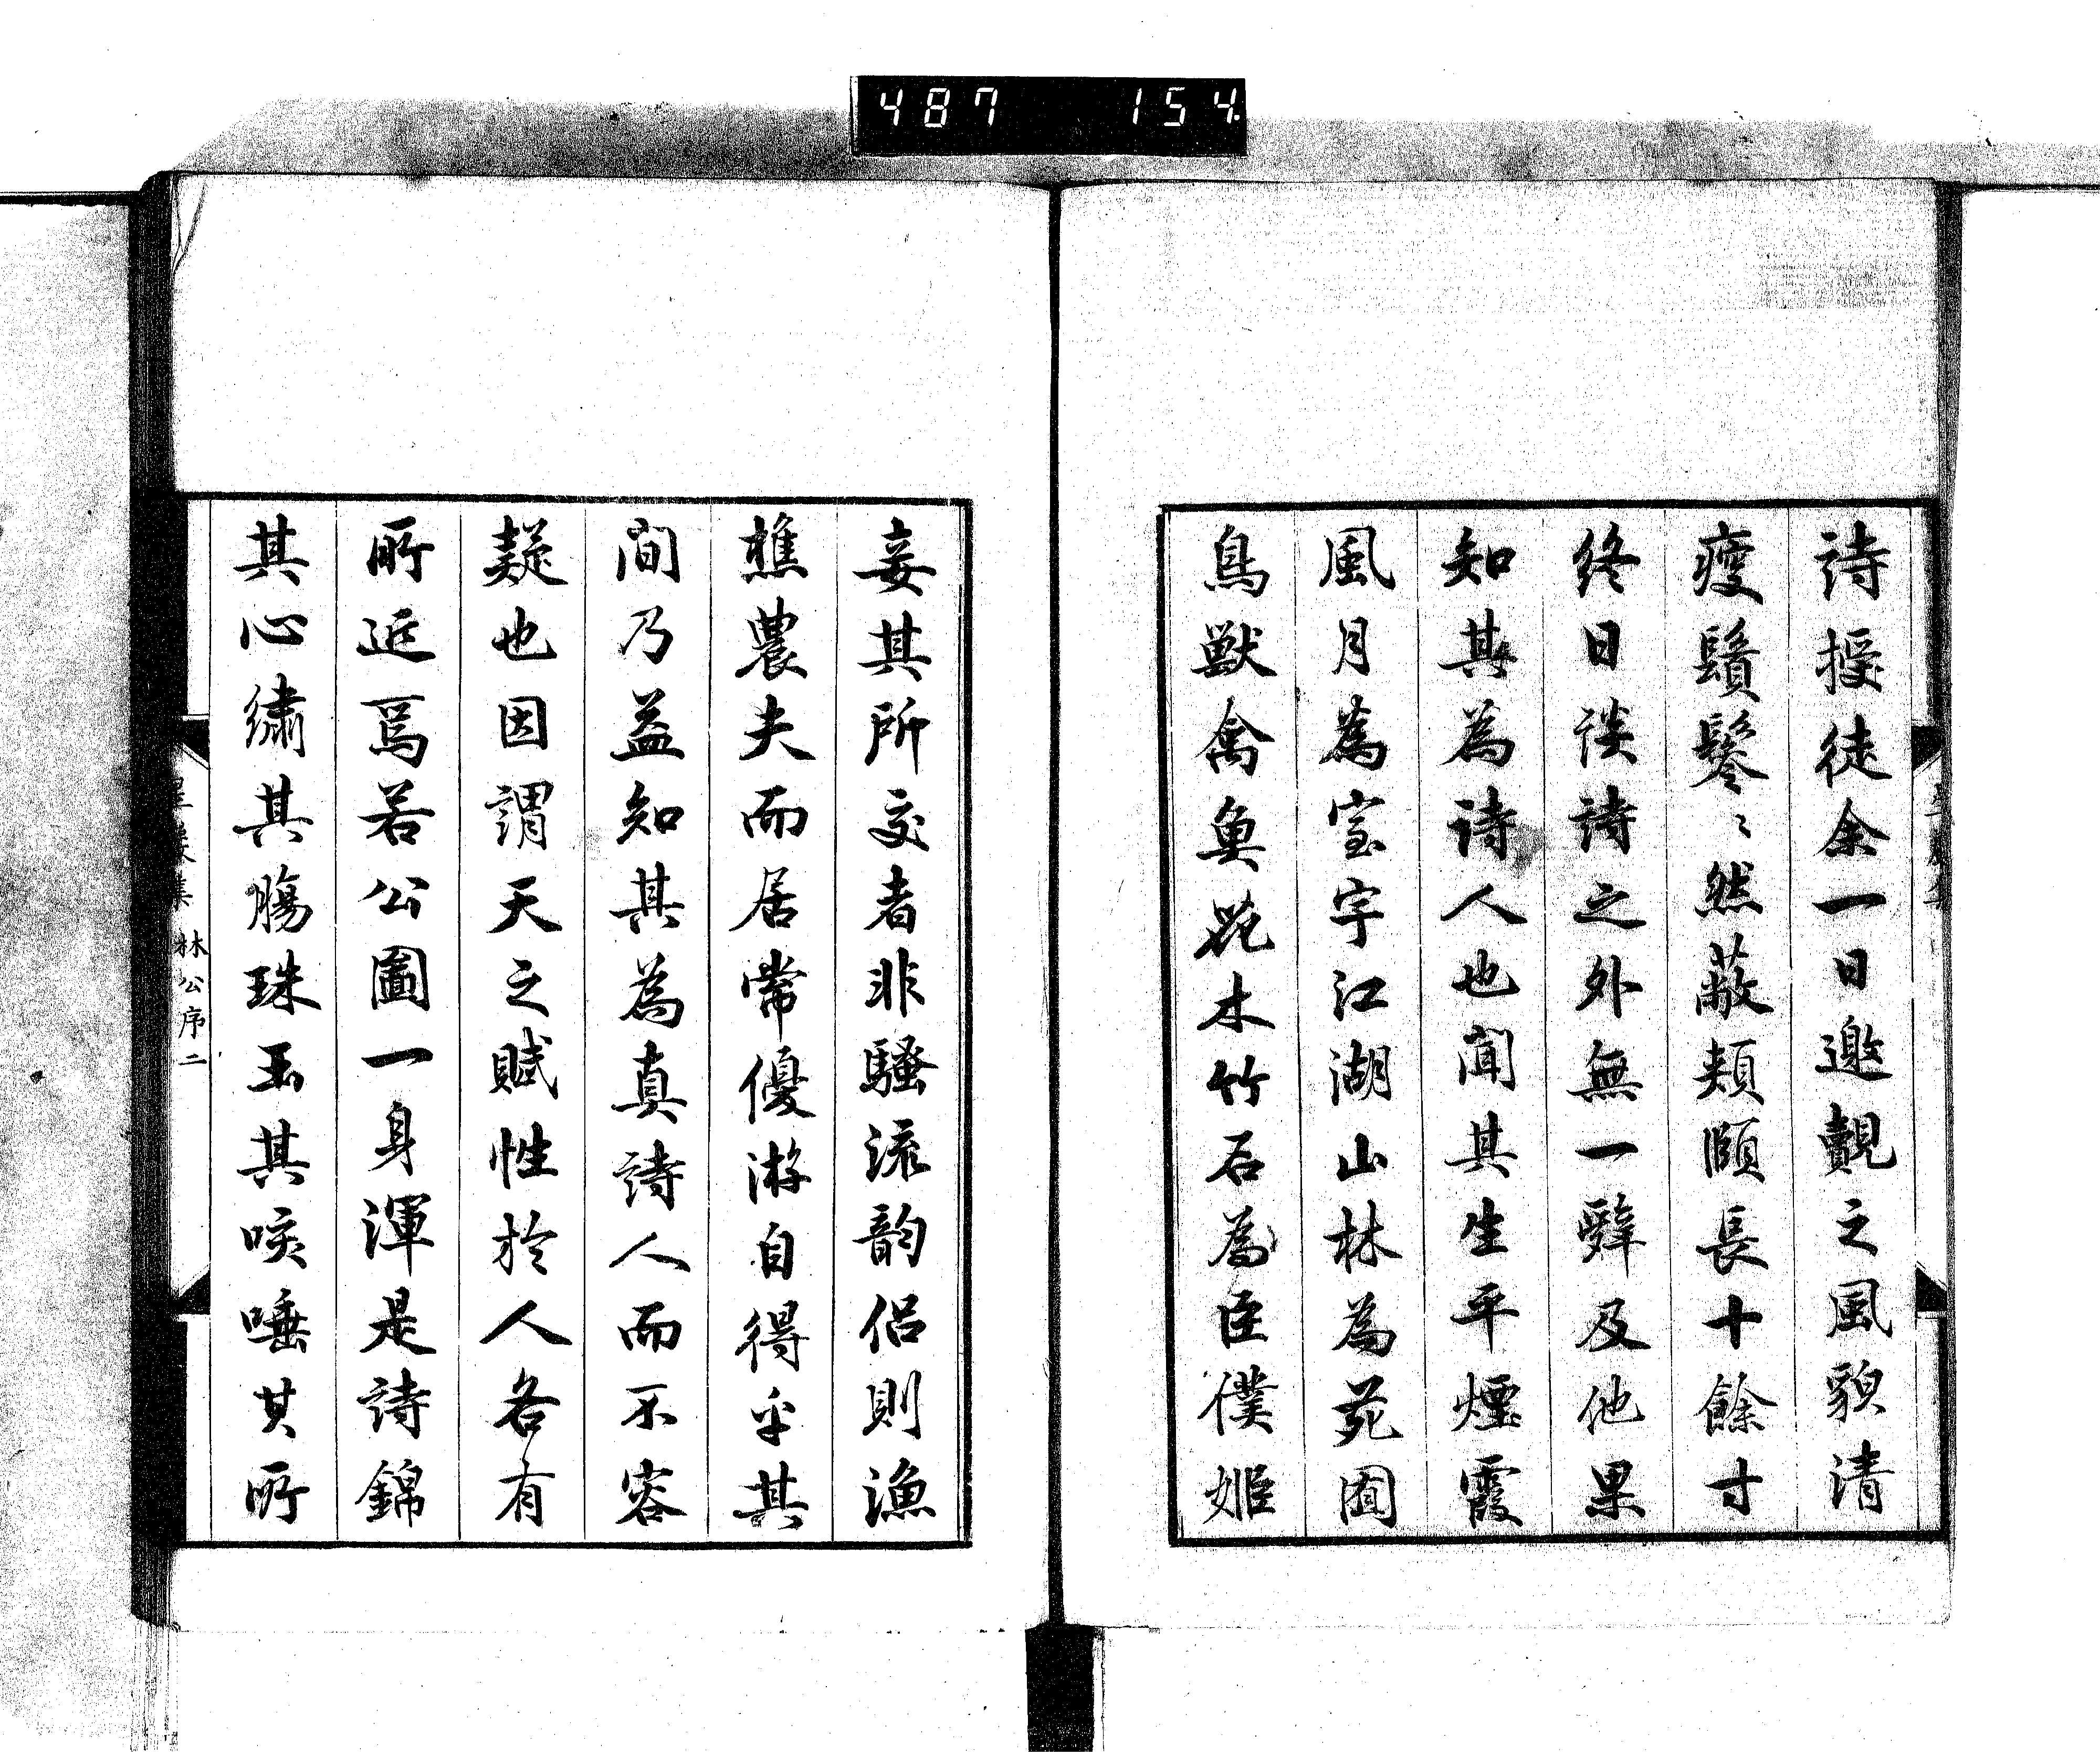 487 154
詩授徒余一日邀覿之風貌清
瘦鬚鬢〻然蔽頬頤長十餘寸
終日談詩之外無一辤及他果
知其為詩人也聞其生平煙霞
風月為室宇江湖山林為苑囿
鳥獣禽魚花木竹石為臣僕姬
妾其所交者非騷流韵侣則漁
樵農夫而居常優游自得乎其
間乃益知其為真詩人而不容
疑也因謂天之賦性於人各有
所近焉若公圖一身渾是詩錦
其心繡其膓珠玉其咳唾其所
集 林公序二